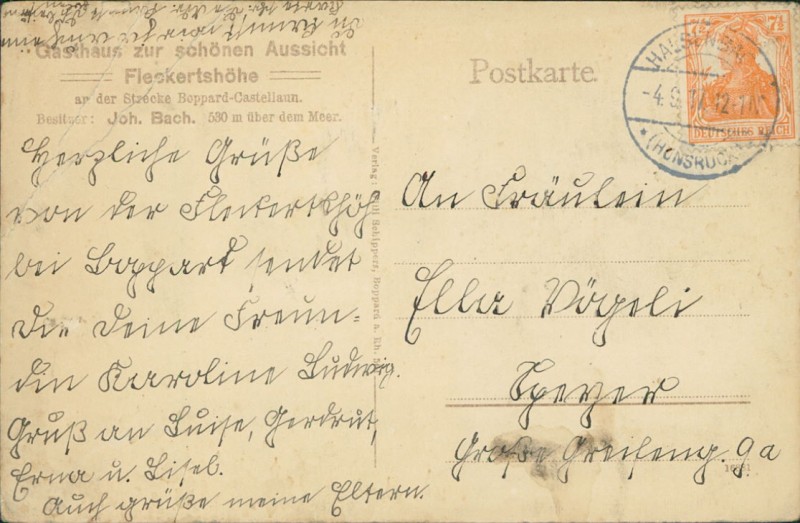 Gasthaus zur schönen Aussicht
Fleckertshöhe
an der Strecke Boppard-Castellaun.
Besitzer: Joh. Bach. 530 m über dem Meer.
Herzliche Grüße
von der Fleckertshöh
bei Boppard sendet
Dir Deine Freun-
din Karoline Ludwig.
Gruß an Luise, Gerdrut,
Erna u. Lisel.
Auch grüße meine Eltern.
Verlag: Schipper, Boppard a. Rh.
Postkarte.
7½
DEUTSCHES REICH
-4.9.17. 12-1N
* (HUNSRÜCK)
An Fräulein
Ella Vögeli
Speyer
Große Greifeng. 9a